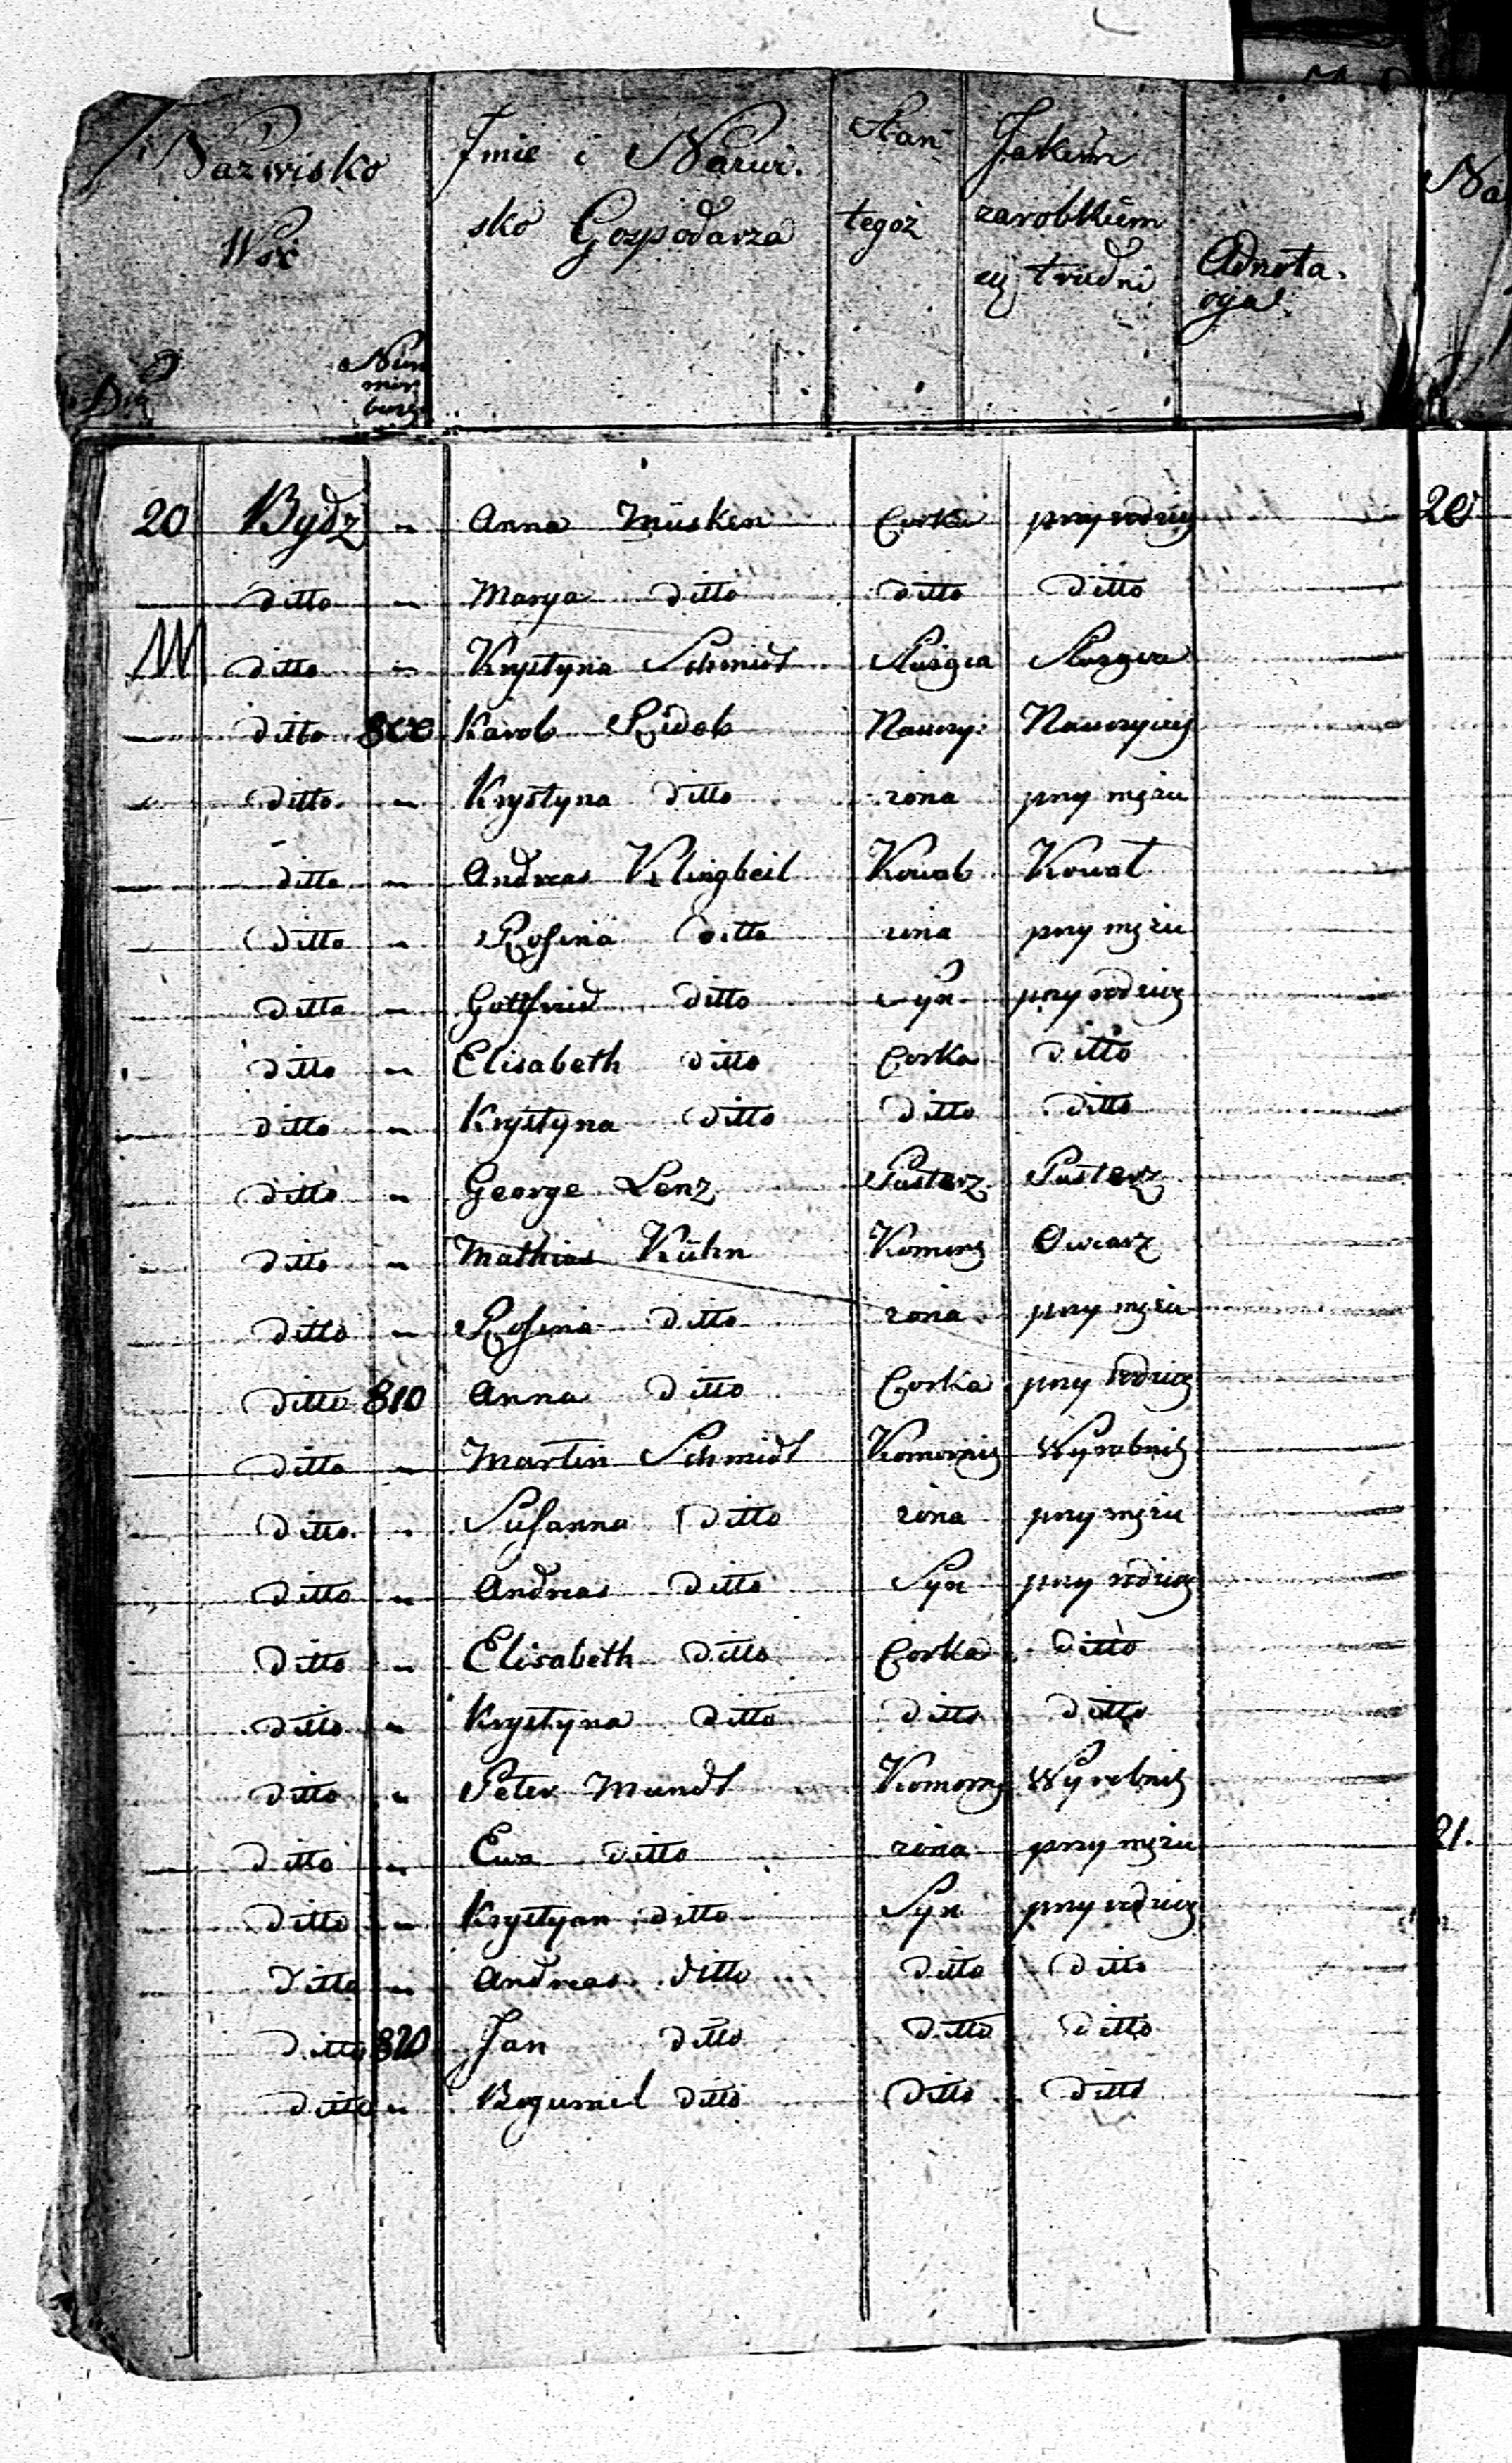 Nazwisko Wsi
Imie i Nazwi. sko Gospodarza
Stan tegoż
Jakiem zarobkiem się trudni
Adnota. cya
Na
20 Bydz " Anna Müsken Corka przy rodzicz 20
ditto " Marya ditto ditto ditto
ditto " Krystyna Schmidt Służąca Służąca
ditto 800 Karol Nauczy: Nauczyciel
ditto " Krystyna ditto zona przy mężu
ditto " Andreas Klingbeil Kowal Kowal
ditto " Rosina ditto zona przy mężu
ditto " Gottfried ditto Syn przy rodzicz
ditto " Elisabeth ditto Corka ditto
ditto " Krystyna ditto ditto ditto
ditto " George Lenz Pasterz Pasterz
ditto " Mathias Kühn Komorn Owczarz
ditto " Rosina ditto zona przy mężu
ditto 810 Anna ditto Corka przy rodzicz
ditto " Martin Schmidt Komornik Wyrobnik
ditto " Susanna ditto zona przy mężu
ditto " Andreas ditto Syn przy rodzicz
ditto " Elisabeth ditto Corka ditto
ditto " Krystyna ditto ditto ditto
ditto " Peter Mundt Komorn Wyrobnik
ditto " Ewa ditto zona przy mężu 21.
ditto " Krystyan ditto Syn przy rodzicz
ditto " Andreas ditto ditto ditto
ditto 820 Jan ditto ditto ditto
ditto " Bogumil ditto ditto ditto